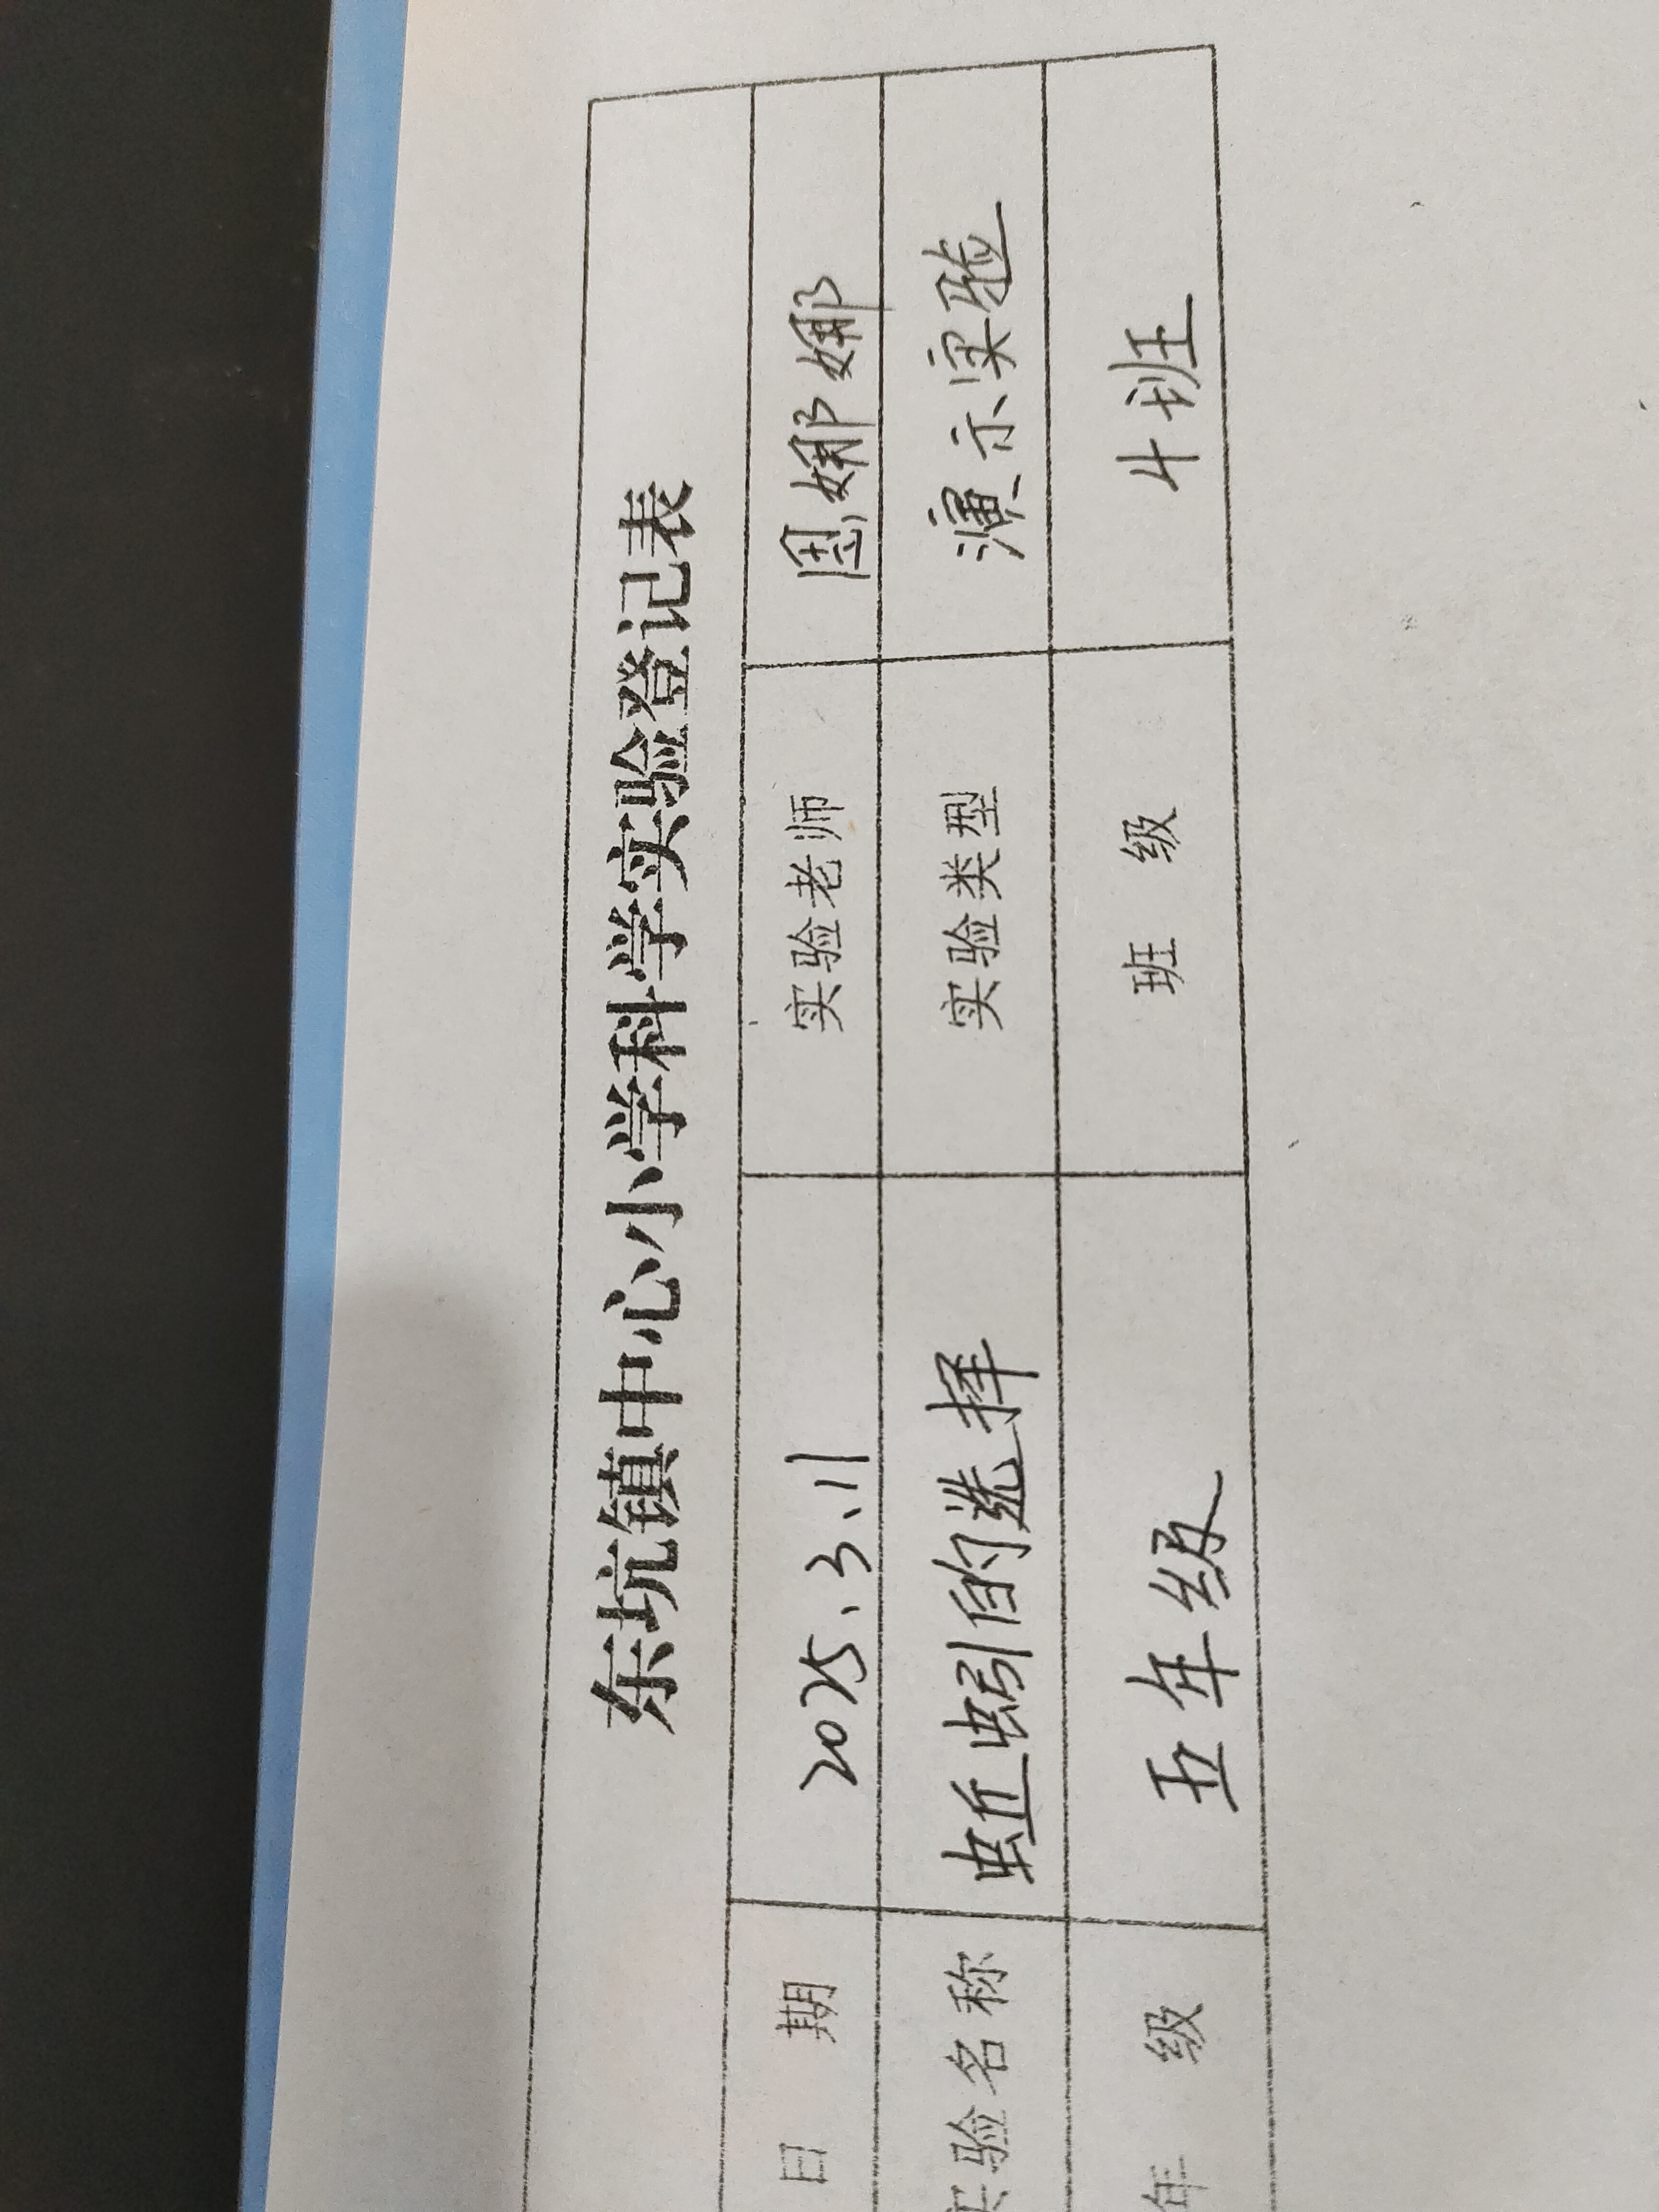 东坑镇中心小学科学实验登记表
日 期 2025.3.11 实验老师 周娜娜
实验名称 蚯蚓的选择 实验类型 演示实验
年 级 五年级 班 级 4班